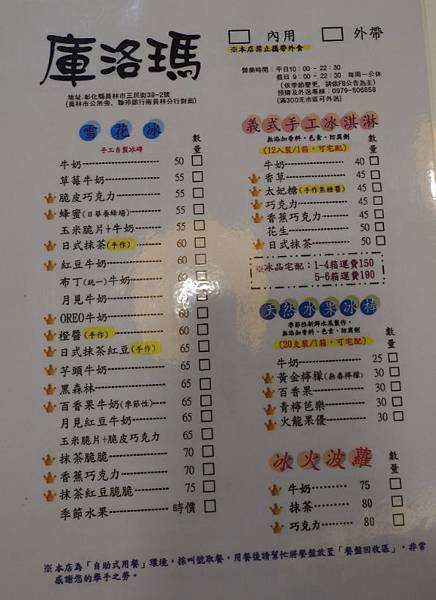 庫洛瑪
□ 內用 □ 外帶
※本店禁止攜帶外食
地址:彰化縣員林市三民街38-2號
(員林市公所旁、聯邦銀行南員林分行對面)
營業時間:平日10:00-22:30
假日 9:00-22:30 每周一公休
(依季節變更,請依FB公告為主)
預購及外送專線:0979-506858
(滿300元市區可外送)
雪花冰 數量
手工自製冰磚
牛奶 50 □
草莓牛奶 55 □
脆皮巧克力 55 □
蜂蜜(日華養蜂場) 55 □
玉米脆片+牛奶 55 □
日式抹茶(手作) 60 □
紅豆牛奶 60 □
布丁(統一)牛奶 60 □
月見牛奶 60 □
OREO牛奶 60 □
橙醬(手作) 60 □
日式抹茶紅豆(手作) 65 □
芋頭牛奶 65 □
黑森林 65 □
百香果牛奶(季節性) 65 □
月見紅豆牛奶 65 □
玉米脆片+脆皮巧克力 65 □
抹茶脆脆 70 □
香蕉巧克力 70 □
抹茶紅豆脆脆 75 □
季節水果 時價 □
義式手工冰淇淋
無添加香料、色素、防腐劑
(12入裝/1箱,可宅配) 數量
牛奶 40 □
香草 45 □
太妃糖(手作焦糖醬) 45 □
巧克力 45 □
香蕉巧克力 45 □
花生 50 □
日式抹茶 50 □
※冰品宅配:1-4箱運費150
5-6箱運費190
天然水果冰棒
季節性新鮮水果製作,
無添加香料、色素、防腐劑
(20支裝/1箱,可宅配) 數量
牛奶 25 □
黃金檸檬(無毒檸檬) 30 □
百香果 30 □
青檸芭樂 30 □
火龍果優 30 □
冰火波蘿 數量
牛奶 75 □
抹茶 80 □
巧克力 80 □
※本店為「自助式用餐」環境,採叫號取餐,用餐後請幫忙將餐盤放至「餐盤回收區」,非常
感謝您的舉手之勞。